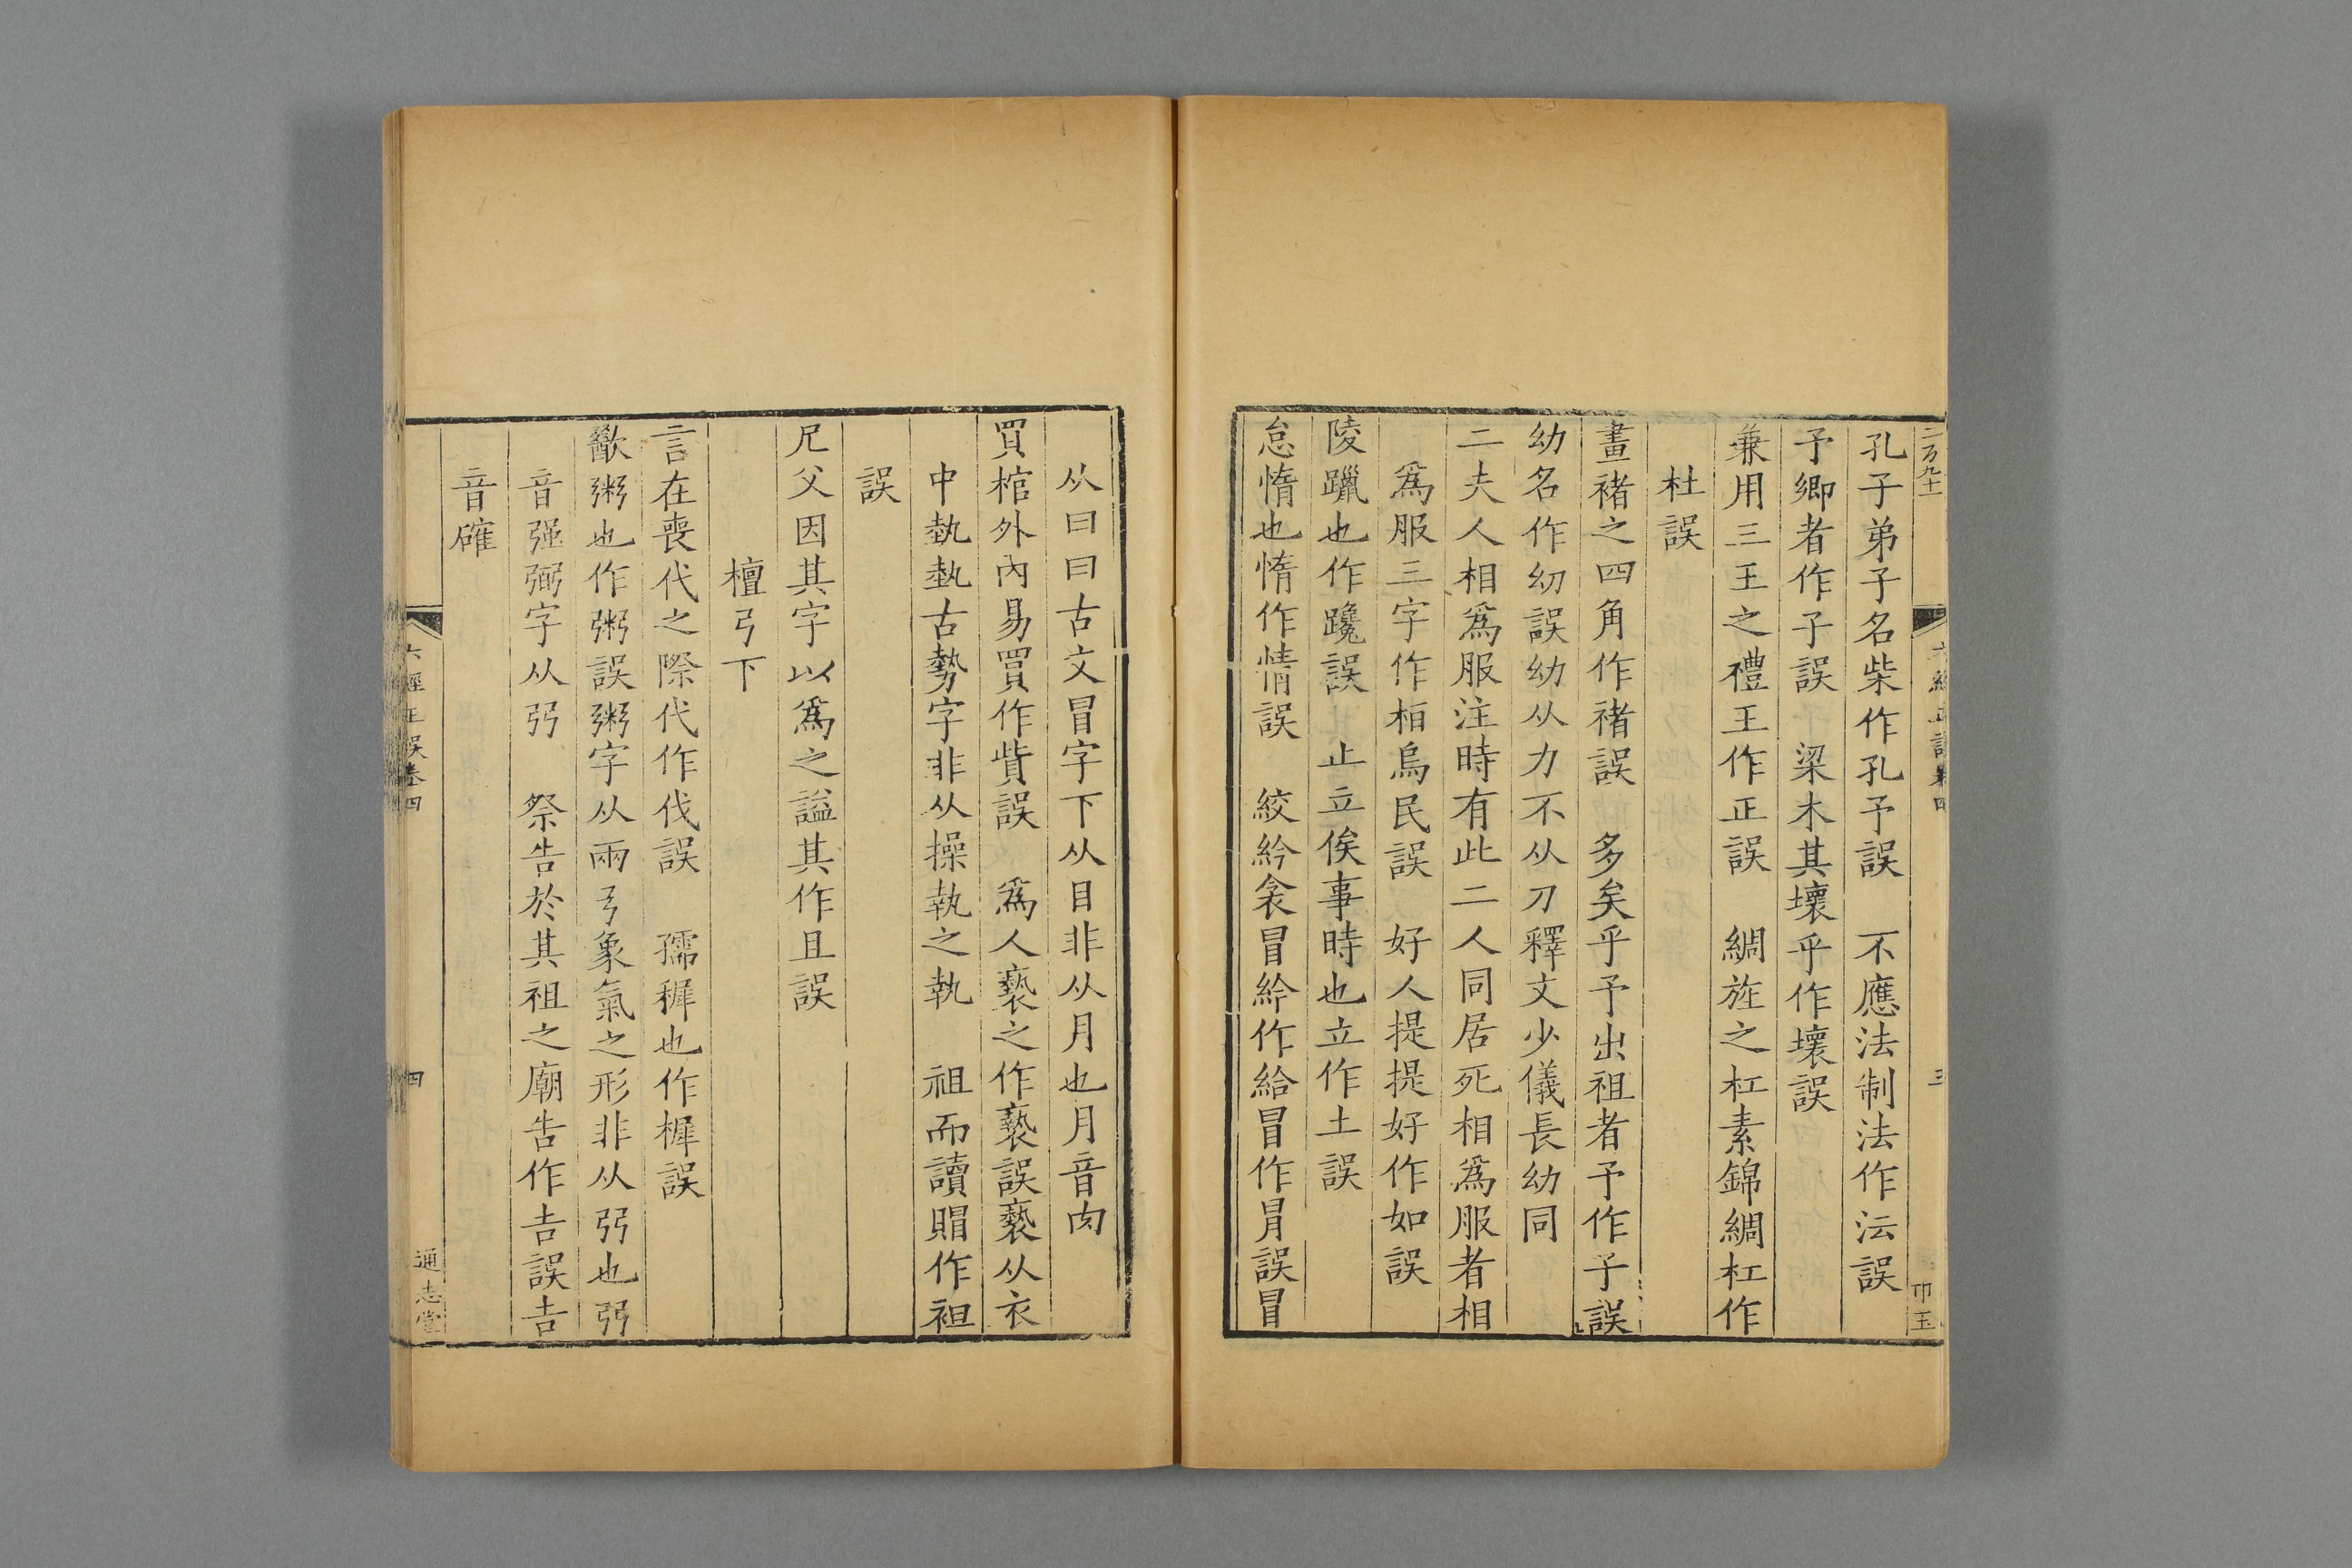 二万九十
六經正誤卷四
三
卭玉
孔子弟子名柴作孔予誤　不應法制法作沄誤
予卿者作子誤　梁木其壞乎作壞誤
兼用三王之禮王作正誤　綢旌之杠素錦綢杠作
杜誤
畫褚之四角作褚誤　多矣乎予出祖者予作子誤
幼名作㓜誤幼从力不从刀釋文少儀長幼同
二夫人相爲服注時有此二人同居死相爲服者相
爲服三字作栢烏民誤　好人提提好作如誤
陵躐也作躔誤　止立俟事時也立作土誤
怠惰也惰作情誤　絞紟衾冒紟作給冒作冐誤冒
从曰曰古文冒字下从目非从月也月音肉
買棺外內易買作貲誤　爲人褻之作䙝誤褻从衣
中埶埶古勢字非从操執之執　祖而讀賵作袒
誤
尼父因其字以爲之謚其作且誤
檀弓下
言在喪代之際代作伐誤　孺穉也作樨誤
歠粥也作粥誤粥字从兩弓象氣之形非从弜也弜
音强弼字从弜　祭告於其祖之廟告作吉誤吉
音確
六經正誤卷四
四
通志堂